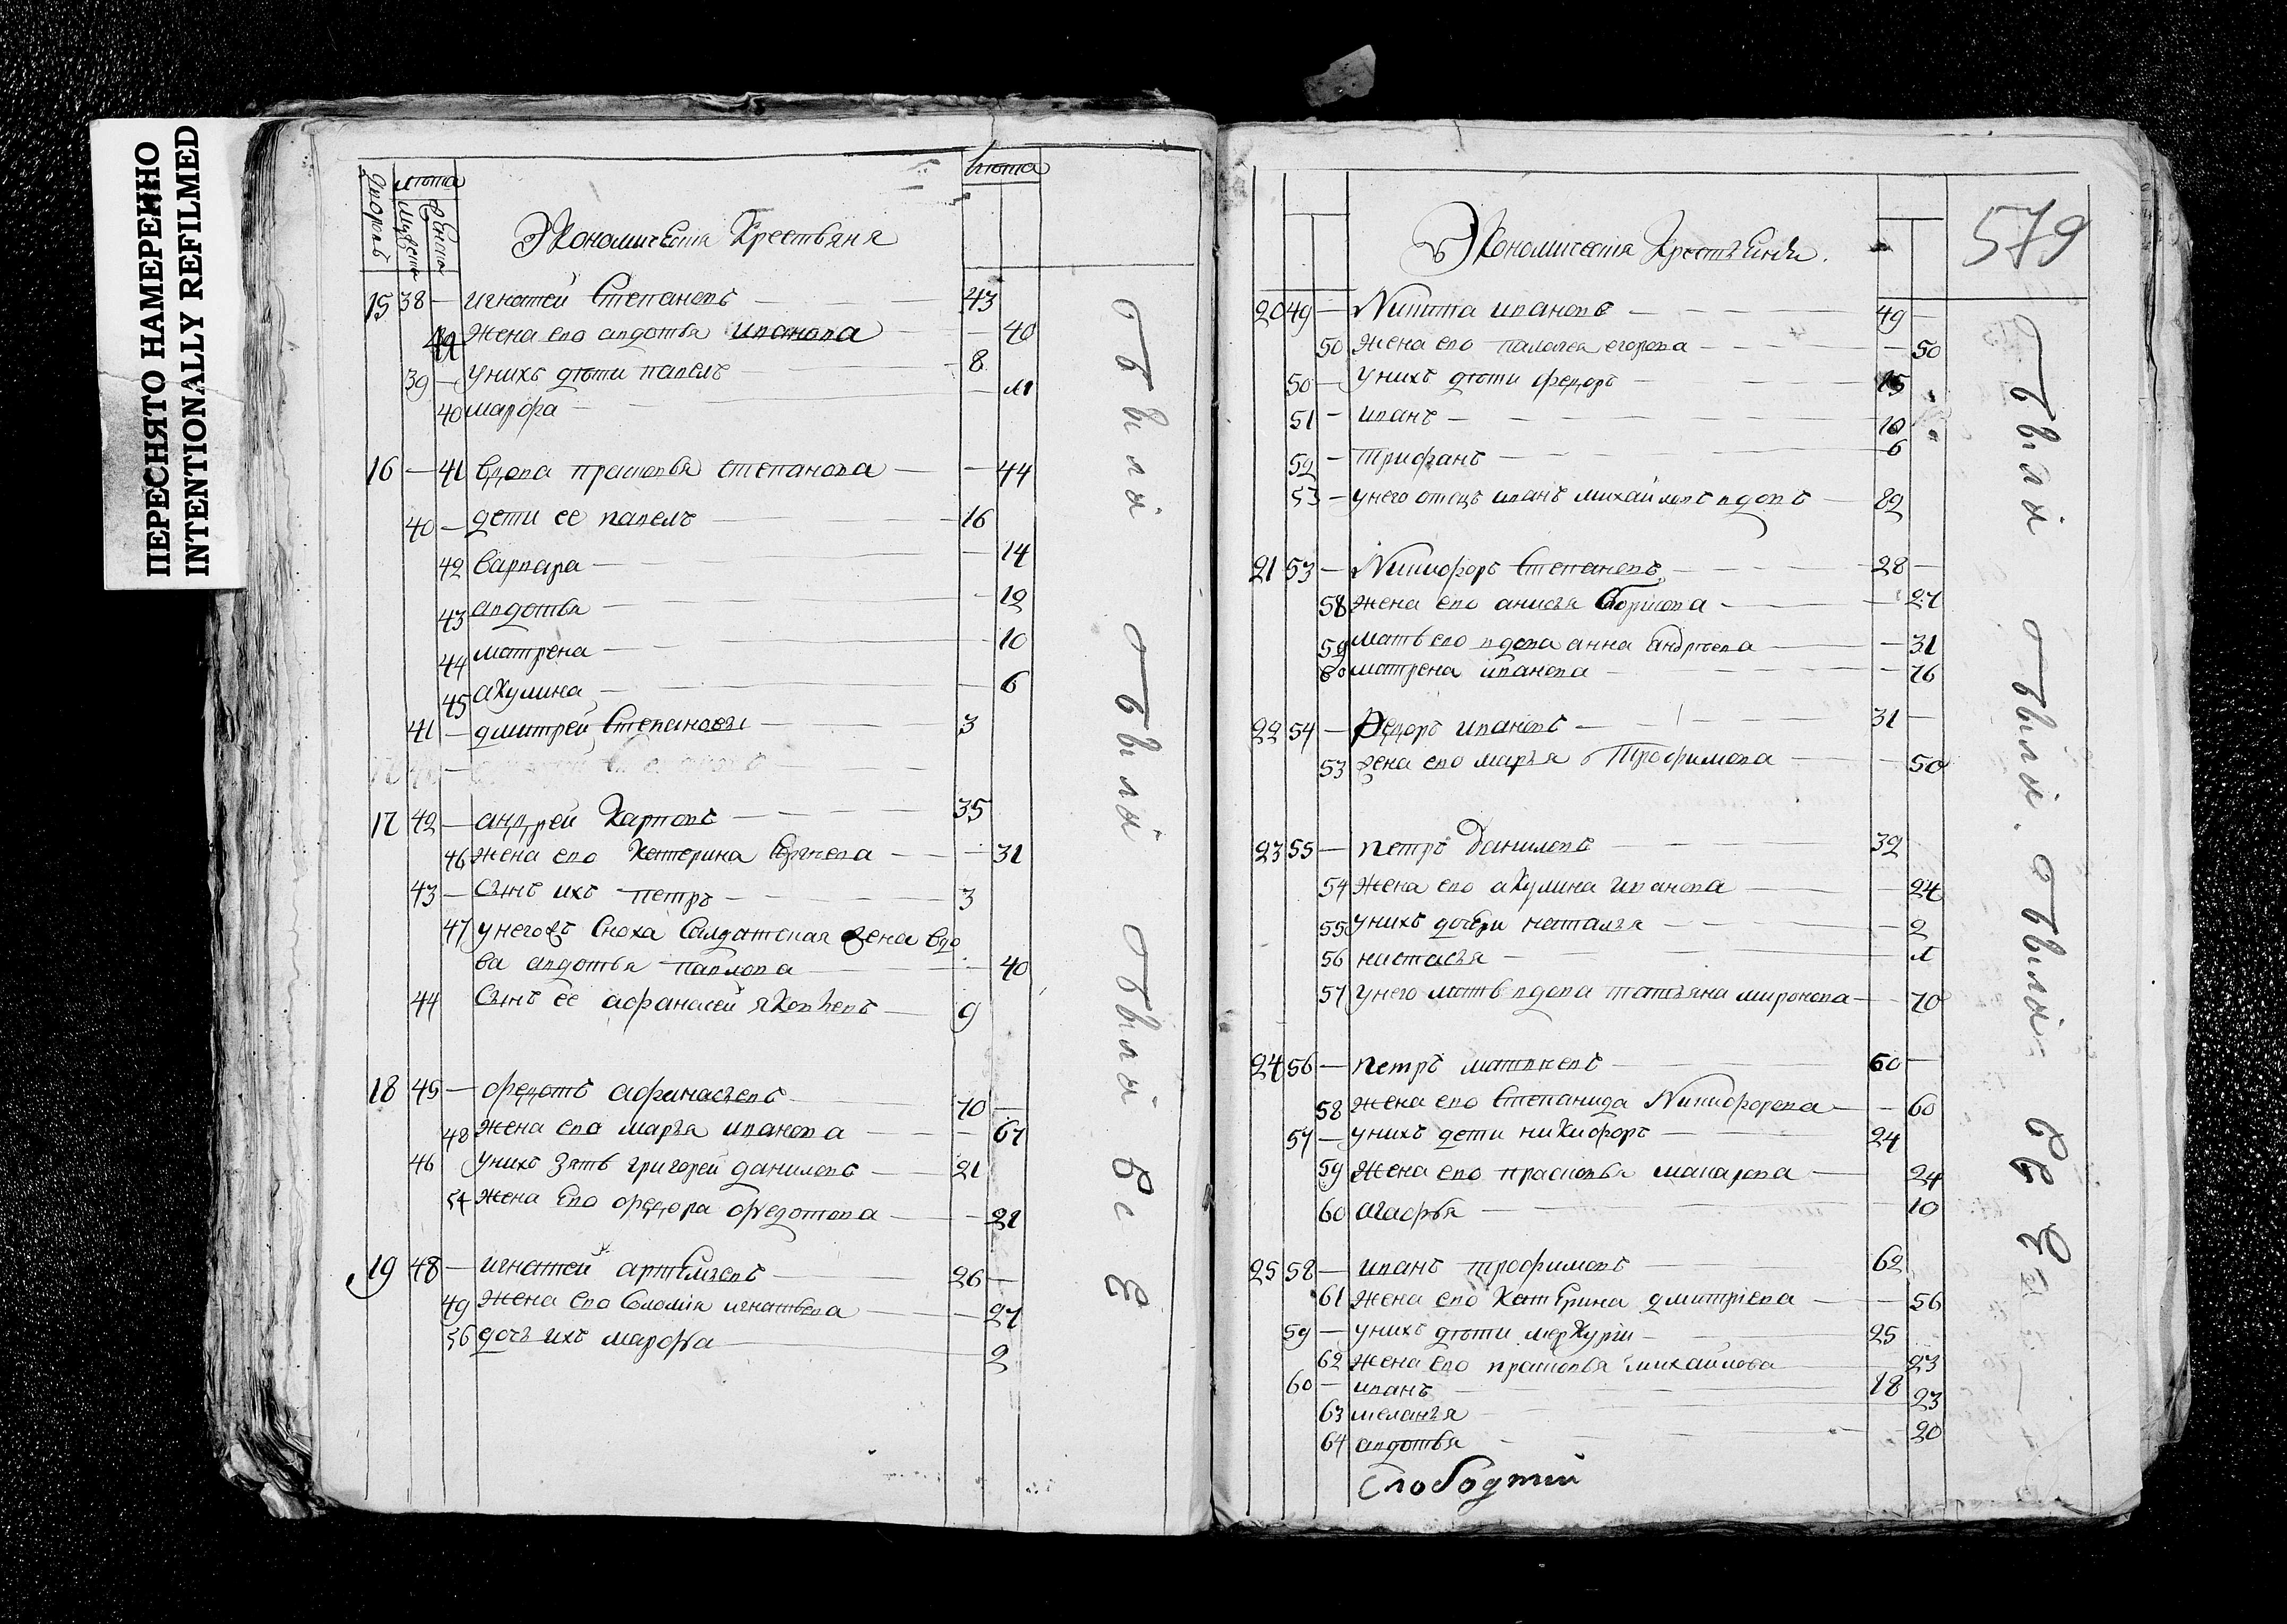 ПЕРЕСНЯТО НАМЕРЕННО
INTENTIONALLY REFILMED
лѣта
лѣта
Экономическия Крестьяня
15 38 — игнатей Степановъ — 43
жена его авдотья иванова — 40
39 — у нихъ дѣти павелъ — 8
40 марфа —
16 — 41 вдова прасковья степанова — 44
40 — дети ее павелъ — 16
42 варвара — 14
43 авдотья — 12
44 матрена — 10
45 акулина — 6
41 — дмитрей 3
17 42 — андрей Карповъ — 35
46 жена его Катерина — 31
43 — сынъ ихъ петръ — 3
47 у него сноха салдатская жена вдо
ва авдотья павлова — 40
44 сынъ ее афанасей яковлевъ — 9
18 45 — федотъ афанасьевъ — 70
48 жена ево марья иванова — 67
46 у нихъ зять григорей даниловъ — 21
жена его федора федотова — 21
19 48 — игнатей артемьевъ — 26 —
49 жена его Соломия игнатьева — 27
дочь ихъ марфа — 2
отвы отвы отвы
579
Экономическия
20 49 — Никита ивановъ — 49 —
50 жена его палагея егорова — 50
50 — у нихъ дѣти федоръ — 15
51 — иванъ — 10
52 — трифанъ — 6
53 — у него отецъ иванъ михайловъ вдовъ — 82
21 53 — Никифоръ Степановъ — 28 —
58 жена его анисья борисова — 27
59 мать его вдова анна андреева — 31
60 матрена иванова — 76
22 54 — Федоръ ивановъ — 31 —
53 жена его марья Трофимова — 50
23 55 — петръ Даниловъ — 32
54 жена его акулина иванова — 24
55 у нихъ дочери наталья — 2
56 настасья —
57 у него мать вдова татьяна миронова — 70
24 56 — петръ матвеевъ — 60 —
58 жена его Степанида Никифорова — 60
57 — у нихъ дети никифоръ — 24
59 жена его прасковья макарова — 24
60 агафья — 10
25 58 — иванъ трофимовъ — 62
61 жена его Катерина дмитриева — 56
59 — у нихъ дѣти меркурии — 25
62 жена его прасковья михайлова 23
60 — иванъ — 18
63 меланья — 23
64 авдотья — 20